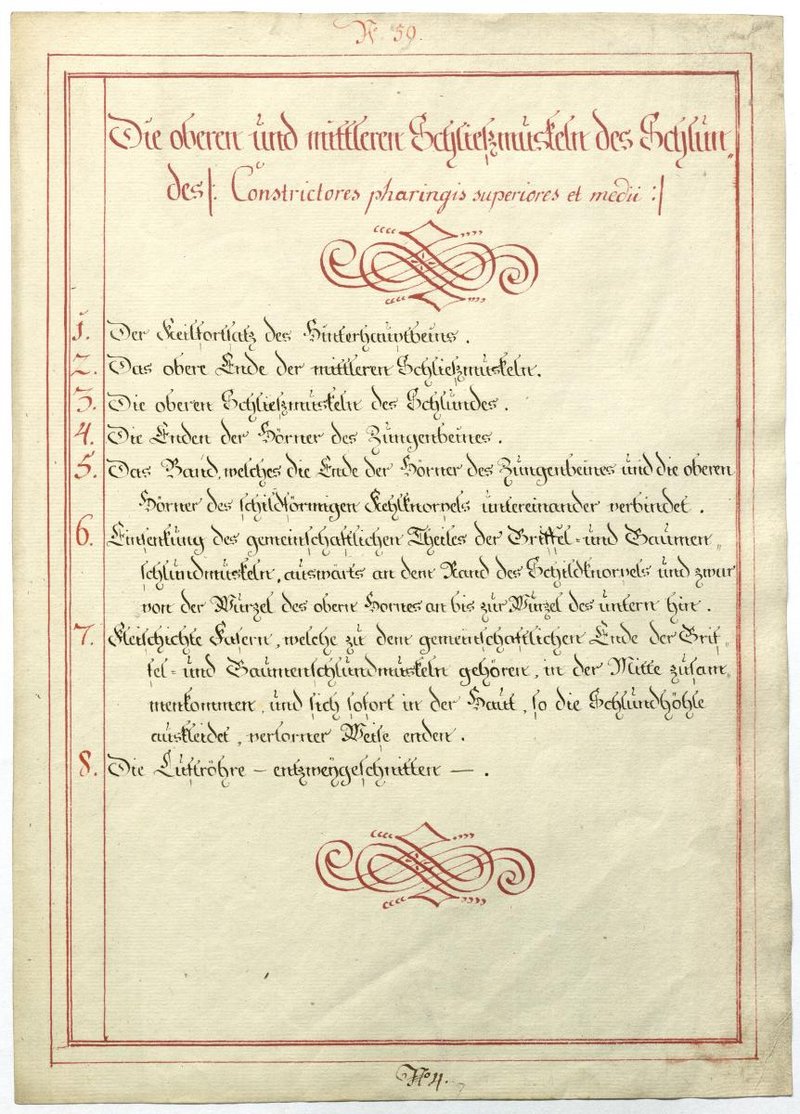 N. 59.
Die oberen und mittleren Schließmuskeln des Schlun„
des |: Constrictores pharingis superiores et medii :|
1. Der Keilfortsatz des Hinterhauptbeins.
2. Das obere Ende der mittleren Schließmuskeln.
3. Die oberen Schließmuskeln des Schlundes.
4. Die Enden der Hörner des Zungenbeines.
5. Das Band, welches die Ende der Hörner des Zungenbeines und die oberen
Hörner des schildförmigen Kehlknorpels untereinander verbindet.
6. Einsenkung des gemeinschaftlichen Theiles der Griffel= und Gaumen„
schlundmuskeln, auswärts an dem Rand des Schildknorpels und zwar
von der Wurzel des obern Hornes an bis zur Wurzel des untern hin.
7. Fleischichte Fasern, welche zu dem gemeinschaftlichen Ende der Grif„
fel= und Gaumenschlundmuskeln gehören, in der Mitte zusam„
menkommen, und sich sofort in der Haut, so die Schlundhöhle
auskleidet, verlorner Weise enden.
8. Die Luftröhre — entzweygeschnitten —.
No 4.